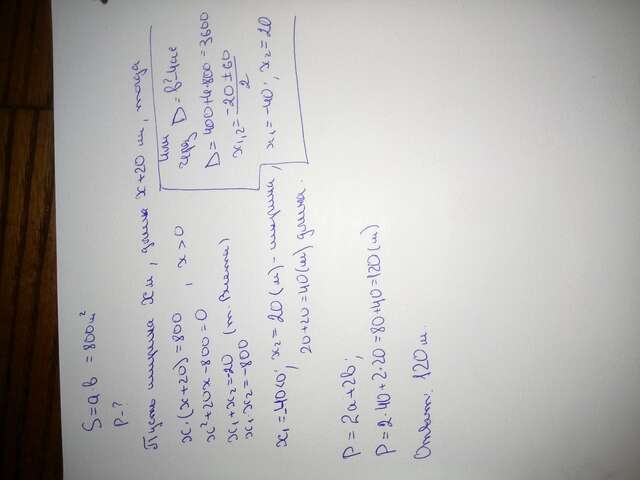 S = ab = 800 м²
P-?
Пусть ширина x м, длина x+20 м, тогда
x·(x+20) = 800
x²+20x-800=0, x>0
x₁+x₂=-20 (т. Виета)
x₁·x₂=-800
x₁=-40<0; x₂=20(м)-ширина,
20+20=40(м) длина.
или
через D=b²-4ac
D=400+4·800=3600
x₁,₂=(-20±60)/2
x₁=-40; x₂=20
P=2a+2b;
P=2·40+2·20=80+40=120(м)
Ответ: 120м.